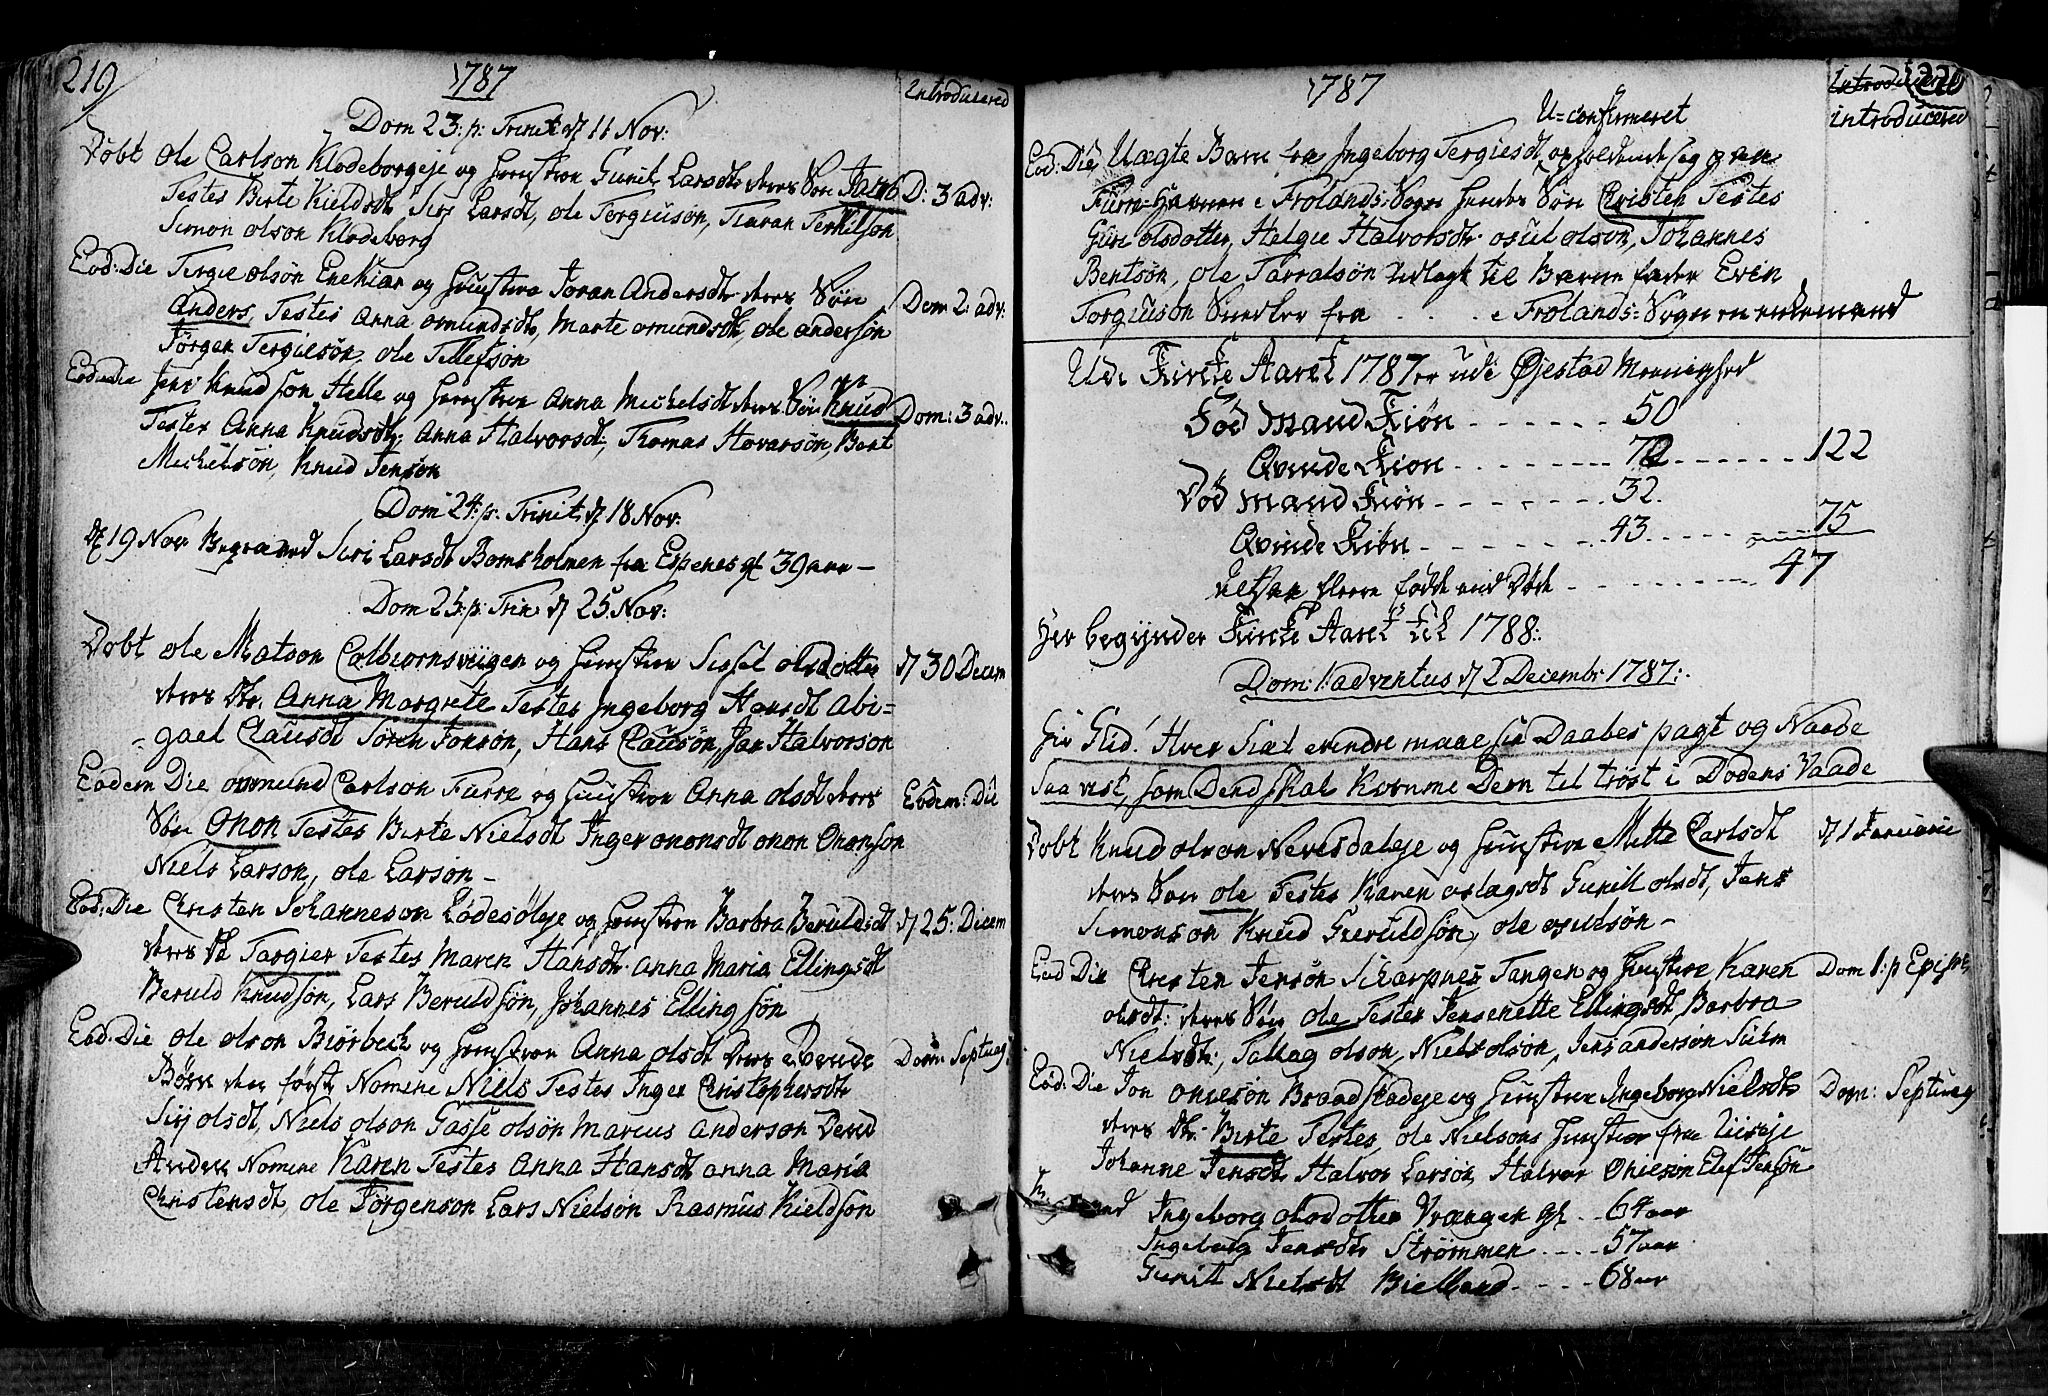 219
1787
Introducered
Dom 23: p: Trinit d 11 Nov:
Døbt Ole Carlson Klodeborgeje og Hustroe Gunil Larsdt deres Søn Jacob D: 3 adv:
Testes Birte Kieldsdt Siri Larsdt, Ole Tergiusøn, Tharan Terkilson
Simon Olson Klodeborg
Eod: Die Tergie Olsøn Enekiær og Hustroe Joran Andersdt deres Søn
Anders, Testes Anna Omundsdt, Marte Omundsdt, Ole Andersøn Dom 2 adv:
Jörgen Tergiesøn, Ole Tellefsøn
Eod: Die Jens Knudsøn Helle og Hustroe Anna Michelsdt deres Søn Knud Dom: 3 adv:
Testes Anna Knudsdt, Anna Halvorsdt, Thomas Hovarsøn, Bent
Michelsøn, Knud Jensøn
Dom 24: p: Trinit d 18 Nov:
D 19 Nov Begraved Siri Larsdt Bomsholmen fra Espenes gl 39 aar –
Dom 25: p: Trin: d 25 Nov:
Døbt Ole Matson Colbiornsviigen og Hustroe Sissel Olsdotter d 30 Decem
deres Dtr. Anna Margrete Testes Ingeborg Hansdt Abi=
gael Clausdt Søren Jonsøn, Hans Clausøn, Jan Halvorson
Eodem Die Omund Carlson Furre og Hustroe Anna Olsdt deres Eodem: Die
Søn Onon Testes Birte Nielsdt Inger Ononsdt Onon Ononson
Niels Larson, Ole Larson –
Eod: Die Christen Johanneson Lødesøleje og Hustroe Barbra Beruldsdt d 25: Dicem
deres Dtr Targier Testes Maren Hansdt Anna Maria Ellingsdt
Beruld Knudsøn, Lars Beruldsøn, Johannes Ellingsøn
Eod: Die Ole Olson Biörbech og Hustroe Anna Olsdt deres Dom: Septuag:
Børn den første Nomine Niels Testes Inger Christophersdt
Sirj Olsdt, Niels Olson Gasse Olsøn Marcus Anderson Dend
Anden Nomine Karen Testes Anna Hansdt Anna Maria
Christensdt, Ole Jörgenson Lars Nielsøn Rasmus Kieldsøn
1787
220
U=confirmeret
introducered
Eod: Die Uægte Barn fra Ingeborg Tergiesdt opholdende sig paa
Furre-Havnen i Frolands: Sogn hendes Søn Christen Testes
Guri Olsdotter, Helgie Halvorsdt Osul Olson, Johannes
Bentsøn, Ole Tarralsøn Udlagt til Barne fader Even
Torgiuson Snedker fra . . . . i Frolands: Sogn en enkemand
Udi Kirke Aaret 1787 er udi Øjestad Menighed
Fød Mand Kiøn - - - - - 50
Qvinde Kiøn - - - - - 72 - - - - - 122
Død Mand Kiøn - - - - - 32.
Qvinde Kiøn - - - - - 43 - - - - - 75
Altsaa fleere fødte end Døde - - - - - 47
Her begynder Kirke Aaret til 1788:
Dom: 1 adventus d 2 Decembr 1787:
Giv Gud! Hver Siæl erindre maae sin Daabes pagt og Naade
Saa vist, som Dend skal komme Dem til trøst i Dødens Vaade
Døbt Knud Olson Nevesdaleje og Hustroe Mette Carlsdt d 1 Januarii
deres Søn Ole Testes Karen Aslagsdt Gunill Olsdt, Jens
Simonson Knud Greruldsøn, Ole Osulsøn –
Eod Die Christen Jensøn Scharpnes Tangen og Hustroe Karen Dom 1: p Epiph
Olsdt: deres Søn Ole Testes Jensenette Ellingsdt, Barbra
Nielsdt, Tallag Olson, Niels Olson, Jens Andersøn Sulm
Eod: Die Jon Oniesøn Braadstadeje og Hustroe Ingeborg Nielsdt Dom: Septuag
deres Dtr. Birte Testes, Ole Nielsons Hustroe fra
Johanne Jensdt Halvor Larsøn Halvor Oniesøn Elef Jensøn
Ingeborg Olsdotter Vrængen gl - - 64 aar
Ingeborg Jensdt Strømmen - - - - 57 aar
Gunill Nielsdt Bielland - - - - 68 aar